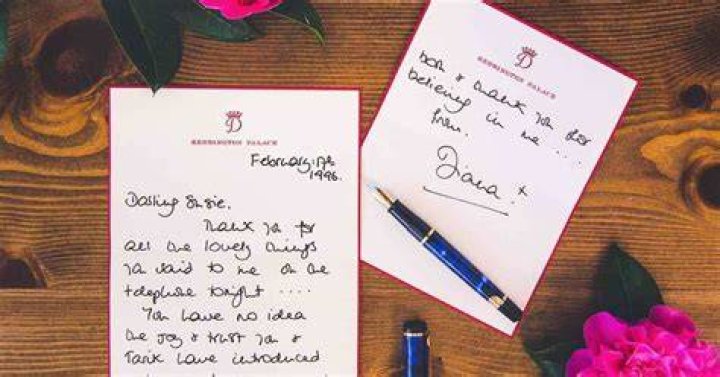 D
KENSINGTON PALACE
February 17th
1996.
Darling Susie,
Thank you for
all the lovely things
you said to me on the
telephone tonight ....
You have no idea
the joy & trust you &
Tarik have introduced
D
KENSINGTON PALACE
& thank you for
believing in me ....
from.
Diana. x